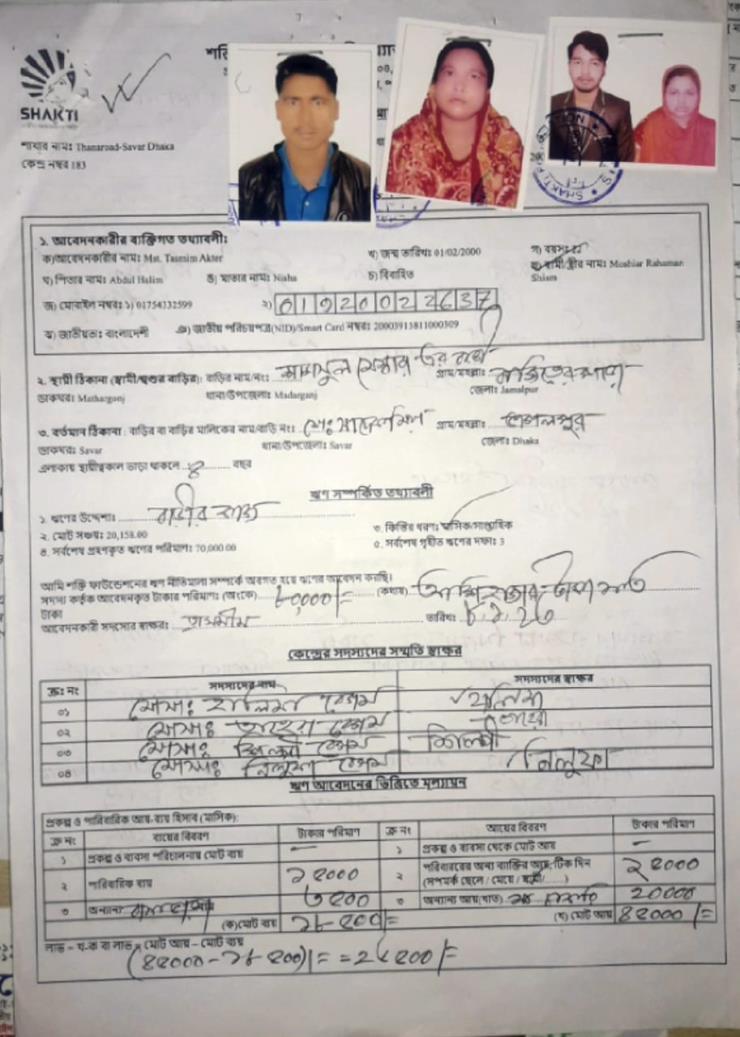 SHAKTI
শাখার নামঃ Thanaroad-Savar Dhaka
কেন্দ্র নম্বর 183
১. আবেদনকারীর ব্যক্তিগত তথ্যাবলী:
ক) আবেদনকারীর নামঃ Mst. Tasmim Akter খ) জন্ম তারিখঃ 01/02/2000 গ) বয়সঃ
ঘ) পিতার নামঃ Abdul Halim ঙ) মাতার নামঃ Nisha চ) বিবাহিত স্বামী/স্ত্রীর নামঃ Moshiar Rahaman Shiam
জ) মোবাইল নম্বরঃ ১) 01754332599 ২) 01920022637
ঝ) জাতীয়তাঃ বাংলাদেশী ঞ) জাতীয় পরিচয়পত্র(NID)/Smart Card নম্বরঃ 20003915811000309
২. স্থায়ী ঠিকানা (স্বামী/শ্বশুর বাড়ির): বাড়ির নাম/নংঃ গ্রাম/মহল্লাঃ
ডাকঘরঃ Matharganj থানা/উপজেলাঃ Madarganj জেলাঃ Jamalpur
৩. বর্তমান ঠিকানা : বাড়ির বা বাড়ির মালিকের নাম/বাড়ি নংঃ গ্রাম/মহল্লাঃ
ডাকঘরঃ Savar থানা/উপজেলাঃ Savar জেলাঃ Dhaka
এলাকায় স্থায়ীত্বকাল ভাড়া থাকলে ৪ বছর
ঋণ সম্পর্কিত তথ্যাবলী
১. ঋণের উদ্দেশ্যঃ বাড়ীর কাজ ৩. কিস্তির ধরণঃ মাসিক/সাপ্তাহিক
২. মোট সঞ্চয়ঃ 20,158.00 ৫. সর্বশেষ গৃহীত ঋণের দফাঃ 3
৪. সর্বশেষ গ্রহণকৃত ঋণের পরিমাণঃ 70,000.00
আমি শক্তি ফাউন্ডেশনের ঋণ নীতিমালা সম্পর্কে অবগত হয়ে ঋণের আবেদন করছি।
সদস্য কর্তৃক আবেদনকৃত টাকার পরিমাণঃ (অংকে) ৮০,০০০/= (কথায়) আশি হাজার টাকা মাত্র
টাকা
আবেদনকারী সদস্যের স্বাক্ষরঃ তাসমীম তারিখঃ
কেন্দ্রের সদস্যদের সম্মতি স্বাক্ষর
ক্রঃ নং সদস্যদের নাম সদস্যদের স্বাক্ষর
০১ মোসাঃ হালিমা বেগম হালিমা
০২ মোসাঃ তাহেরা বেগম
০৩ মোসাঃ শিল্পী বেগম শিল্পী
০৪ মোসাঃ নিলুফা বেগম নিলুফা
ঋণ আবেদনের ভিত্তিতে মূল্যায়ন
প্রকল্প ও পারিবারিক আয়-ব্যয় হিসাব (মাসিক):
ক্র নং ব্যয়ের বিবরণ টাকার পরিমাণ ক্র নং আয়ের বিবরণ টাকার পরিমাণ
১ প্রকল্প ও ব্যবসা পরিচালনায় মোট ব্যয় – ১ প্রকল্প ও ব্যবসা থেকে মোট আয় –
২ পারিবারিক ব্যয় ১২০০০ ২ পরিবারের অন্য ব্যক্তির আয়, টিক দিন (সম্পর্ক ছেলে / মেয়ে / স্বামী) ২২০০০
৩ অন্যান্য ৩ অন্যান্য আয়(খাত) 20000
(ক) মোট ব্যয় (খ) মোট আয় ৪২০০০/=
লাভ = খ-ক বা লাভ = মোট আয় – মোট ব্যয়